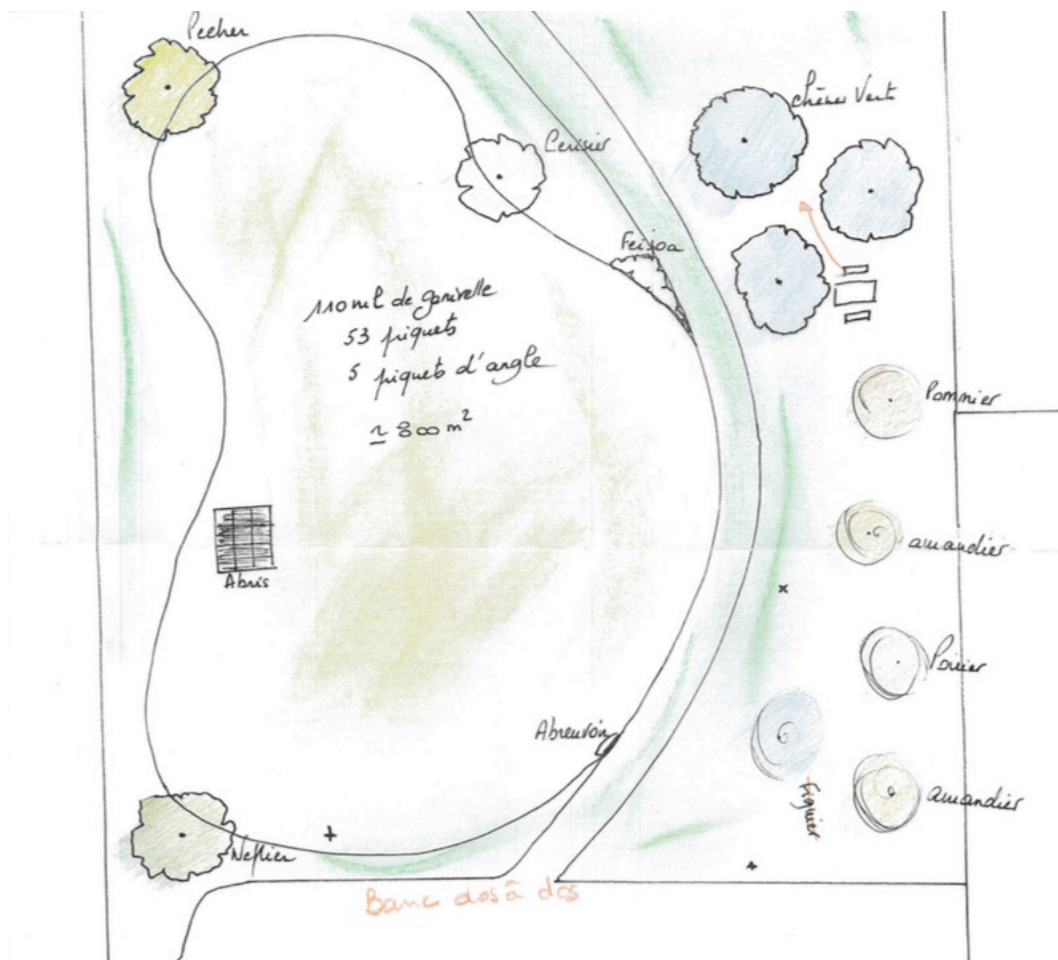 Pecher
Chênes Verts
Cerisier
Feijoa
110 ml de ganivelle
53 piquets
5 piquets d'angle
≃ 800 m²
Pommier
amandier
Abris
Poirier
Abreuvoir
Figuier
amandier
Neflier
Banc dos à dos